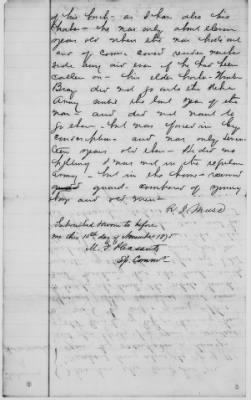 of his birth - as I have also his
brother - He was only about eleven
years old when the war broke out
and of course could render neither
side any aid even if he had been
called on - his elder brother
Bray did not go into the Rebel
Army until the last year of the
war - and did not want to
go then - but was forced in by
conscription - and was only seven-
teen years old then - He did no
fighting & was not in the regular
Army - but in the home-reserve
guard - composed of young
boys and old men
R. J. Muse
Subscribed & sworn to before
me this 10th day of November 1875
M. F. Pleasants
Sp. Commr